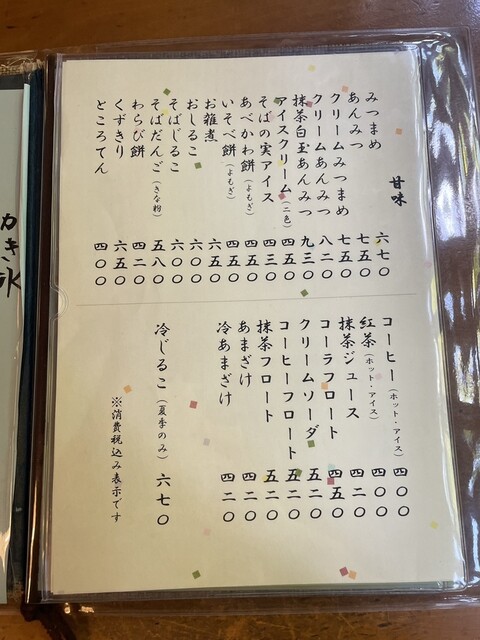 甘味
みつまめ 六七〇
あんみつ 七五〇
クリームみつまめ 七五〇
クリームあんみつ 八二〇
抹茶白玉あんみつ 九三〇
アイスクリーム(二色) 四五〇
そばの実アイス 四三〇
あべかわ餅(よもぎ) 四五〇
いそべ餅(よもぎ) 四五〇
お雑煮 六五〇
おしるこ 六〇〇
そばじるこ 六〇〇
そばだんご(きな粉) 五八〇
わらび餅 四二〇
くずきり 六五〇
ところてん 四〇〇
コーヒー(ホット・アイス) 四〇〇
紅茶(ホット・アイス) 四〇〇
抹茶ジュース 四二〇
コーラフロート 四五〇
クリームソーダ 五二〇
コーヒーフロート 五二〇
抹茶フロート 五二〇
あまざけ 四二〇
冷あまざけ 四二〇
冷じるこ(夏季のみ) 六七〇
※消費税込み表示です
かき氷